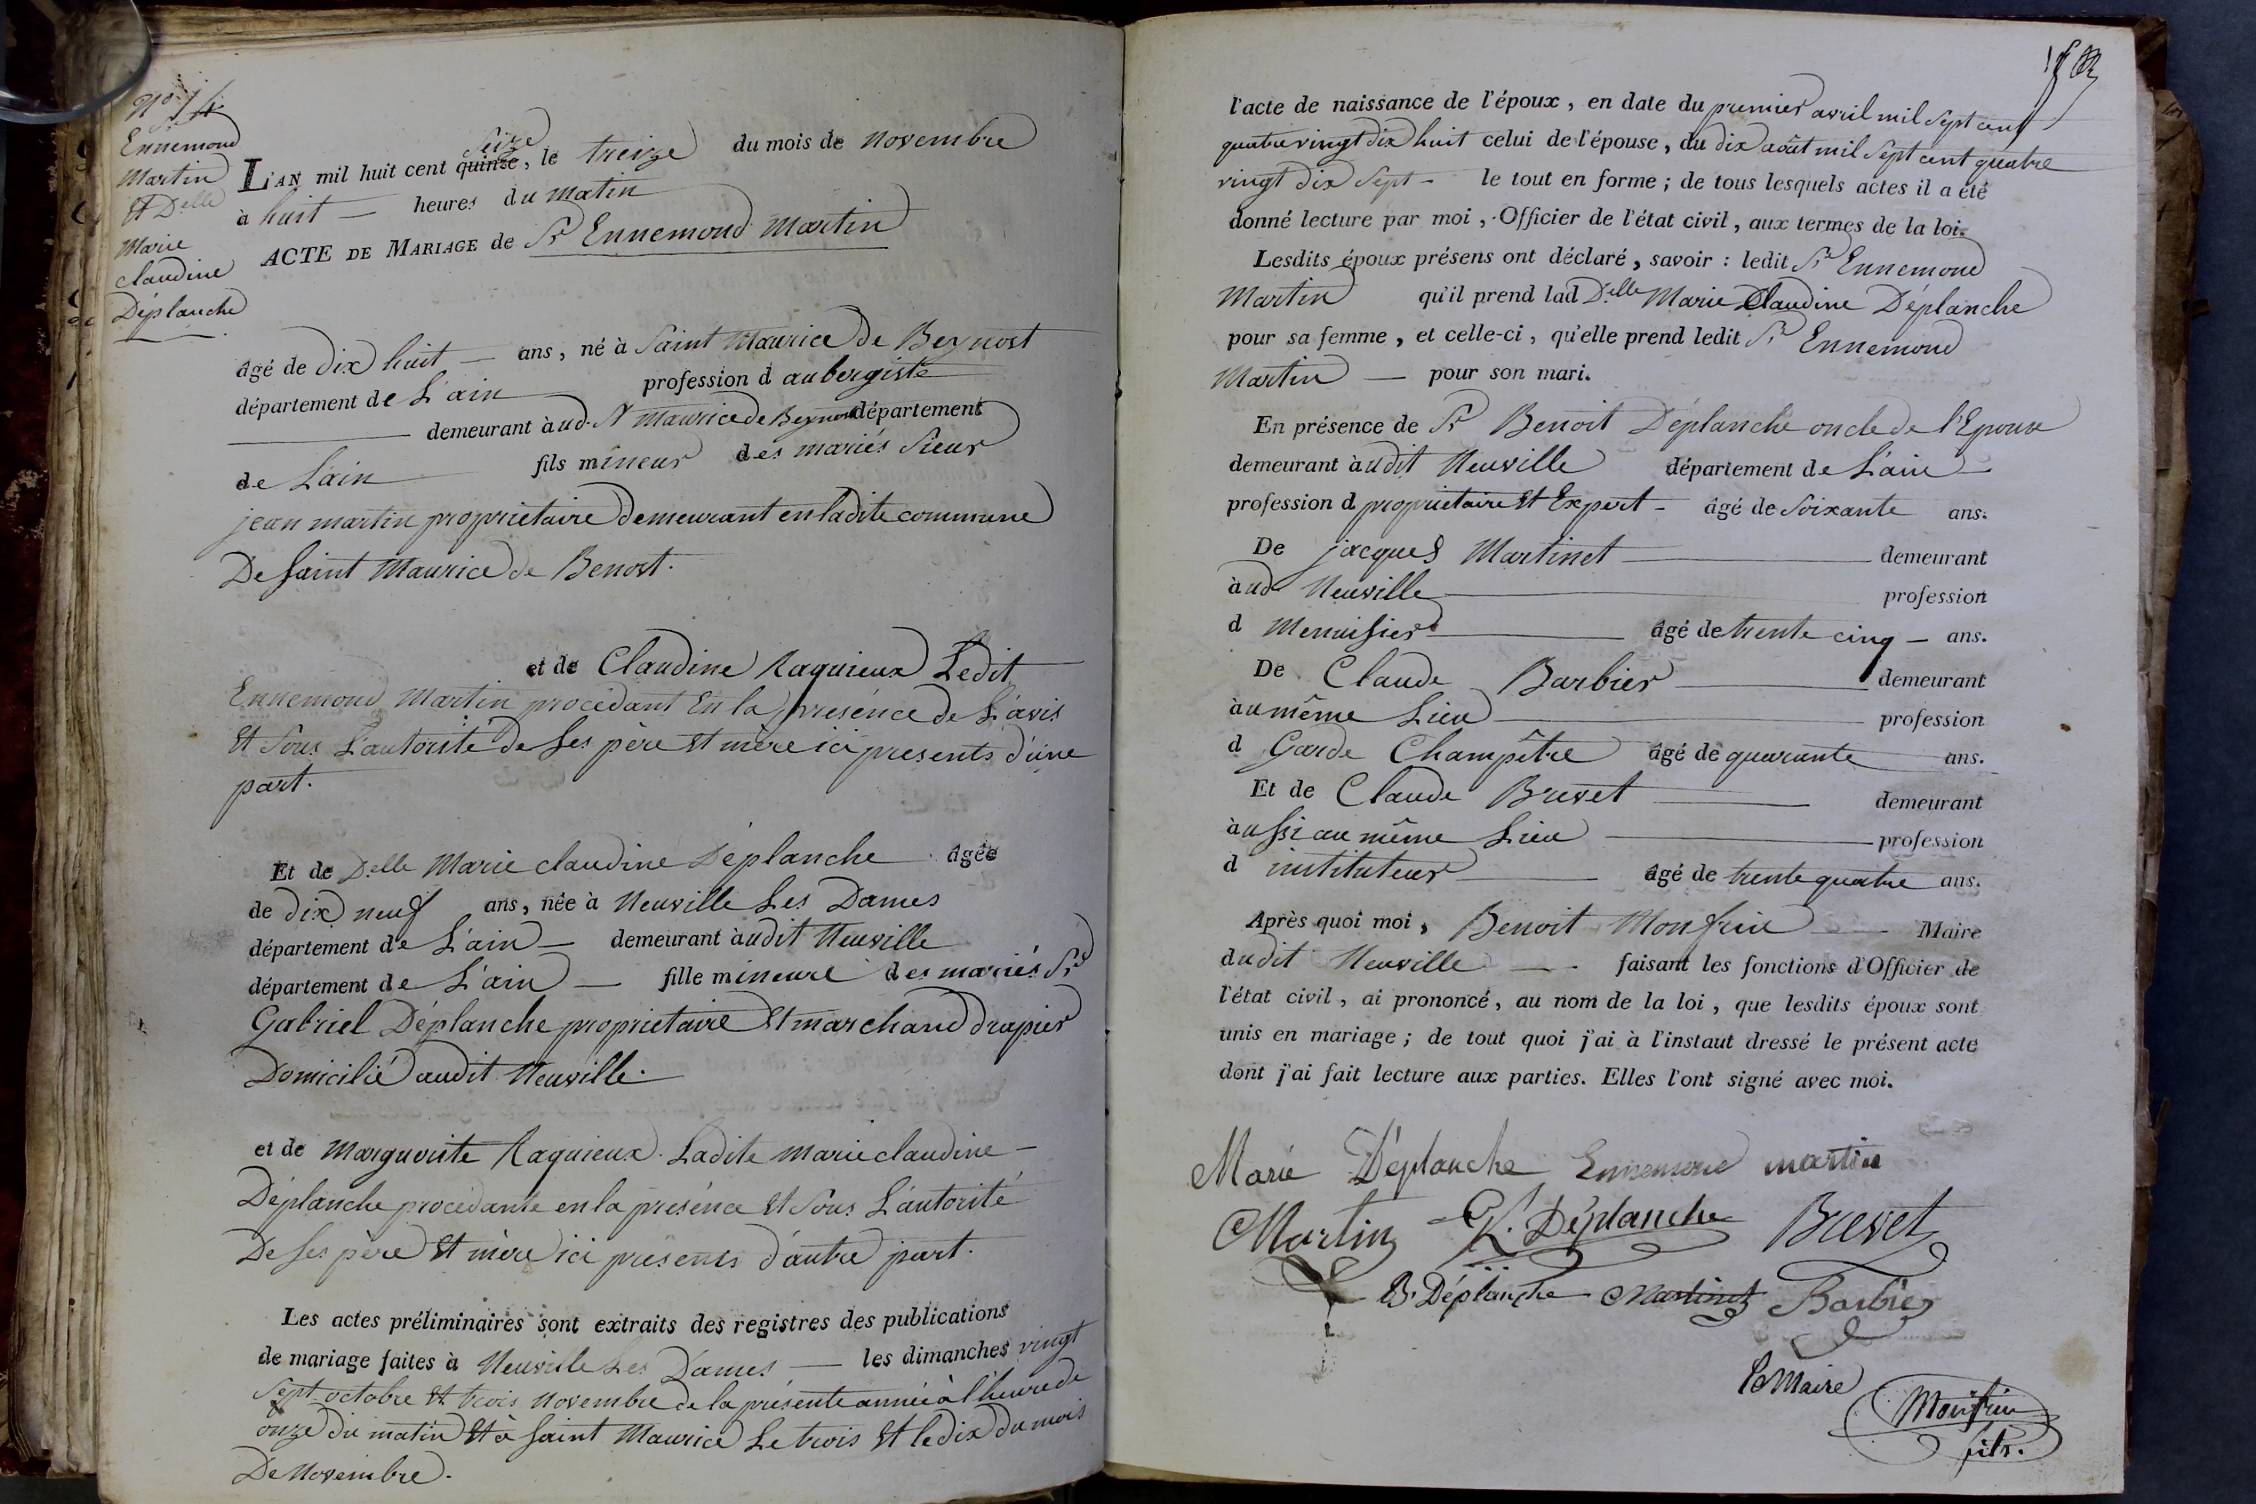 N.º 14
Ennemond
Martin
Et Delle
Marie
Claudine
Déplanche
Seize
L'AN mil huit cent quinze, le treize du mois de Novembre
à huit — heures du matin
ACTE DE MARIAGE de Sr Ennemond Martin
âgé de dix huit — ans, né à Saint Maurice de Beynost
département de L'ain profession d aubergiste
demeurant à ud. St Maurice de Beynost département
de L'ain fils mineur des mariés Sieur
jean martin propriétaire demeurant en ladite commune
De Saint Maurice de Benost.
et de Claudine Raquieux Ledit
Ennemond Martin procédant En la présence de L'avis
Et Sous L'autorité de Ses père Et mère ici présents d'une
part.
Et de Delle Marie claudine Déplanche âgée
de dix neuf ans, née à Neuville Les Dames
département de L'ain — demeurant àudit Neuville
département de L'ain — fille mineure des mariés Sr
Gabriel Déplanche propriétaire Et marchand drapier
Domicilié audit Neuville.
et de Marguerite Raquieux. Ladite marie claudine —
Déplanche procédante en la présence Et Sous L'autorité
De Ses père Et mère ici présents d'autre part.
Les actes préliminaires sont extraits des registres des publications
de mariage faites à Neuville Les Dames — les dimanches vingt
Sept octobre Et trois Novembre de la présente année à l'heure de
onze du matin Et à Saint Maurice Le trois Et le dix du mois
De Novembre.
l'acte de naissance de l'époux, en date du premier avril mil Sept cent
quatre vingt dix huit celui de l'épouse, du dix août mil Sept cent quatre
vingt dix Sept — le tout en forme ; de tous lesquels actes il a été
donné lecture par moi, Officier de l'état civil, aux termes de la loi.
Lesdits époux présens ont déclaré, savoir : ledit Sr Ennemond
Martin qu'il prend lad Delle Marie Claudine Déplanche
pour sa femme, et celle-ci, qu'elle prend ledit Sr Ennemond
Martin — pour son mari.
En présence de Sr Benoit Déplanche oncle de l'Epouse
demeurant àudit Neuville département de L'ain —
profession d propriétaire Et Expert — âgé de Soixante ans.
De jacques Martinet demeurant
à ud Neuville profession
d Menuisier âgé de trente cinq — ans.
De Claude Barbier demeurant
àu même Lieu profession
d Garde Champêtre âgé de quarante ans.
Et de Claude Brevet demeurant
àussi au même Lieu profession
d instituteur âgé de trente quatre ans.
Après quoi moi, Benoit Monfrin Maire
dudit Neuville — faisant les fonctions d'Officier de
l'état civil, ai prononcé, au nom de la loi, que lesdits époux sont
unis en mariage ; de tout quoi j'ai à l'instaut dressé le présent acte
dont j'ai fait lecture aux parties. Elles l'ont signé avec moi.
Marie Déplanche Ennemond martin
Martin G. Déplanche Brevet
B. Déplanche Martinet Barbier
Le Maire
Monfrin
fils.